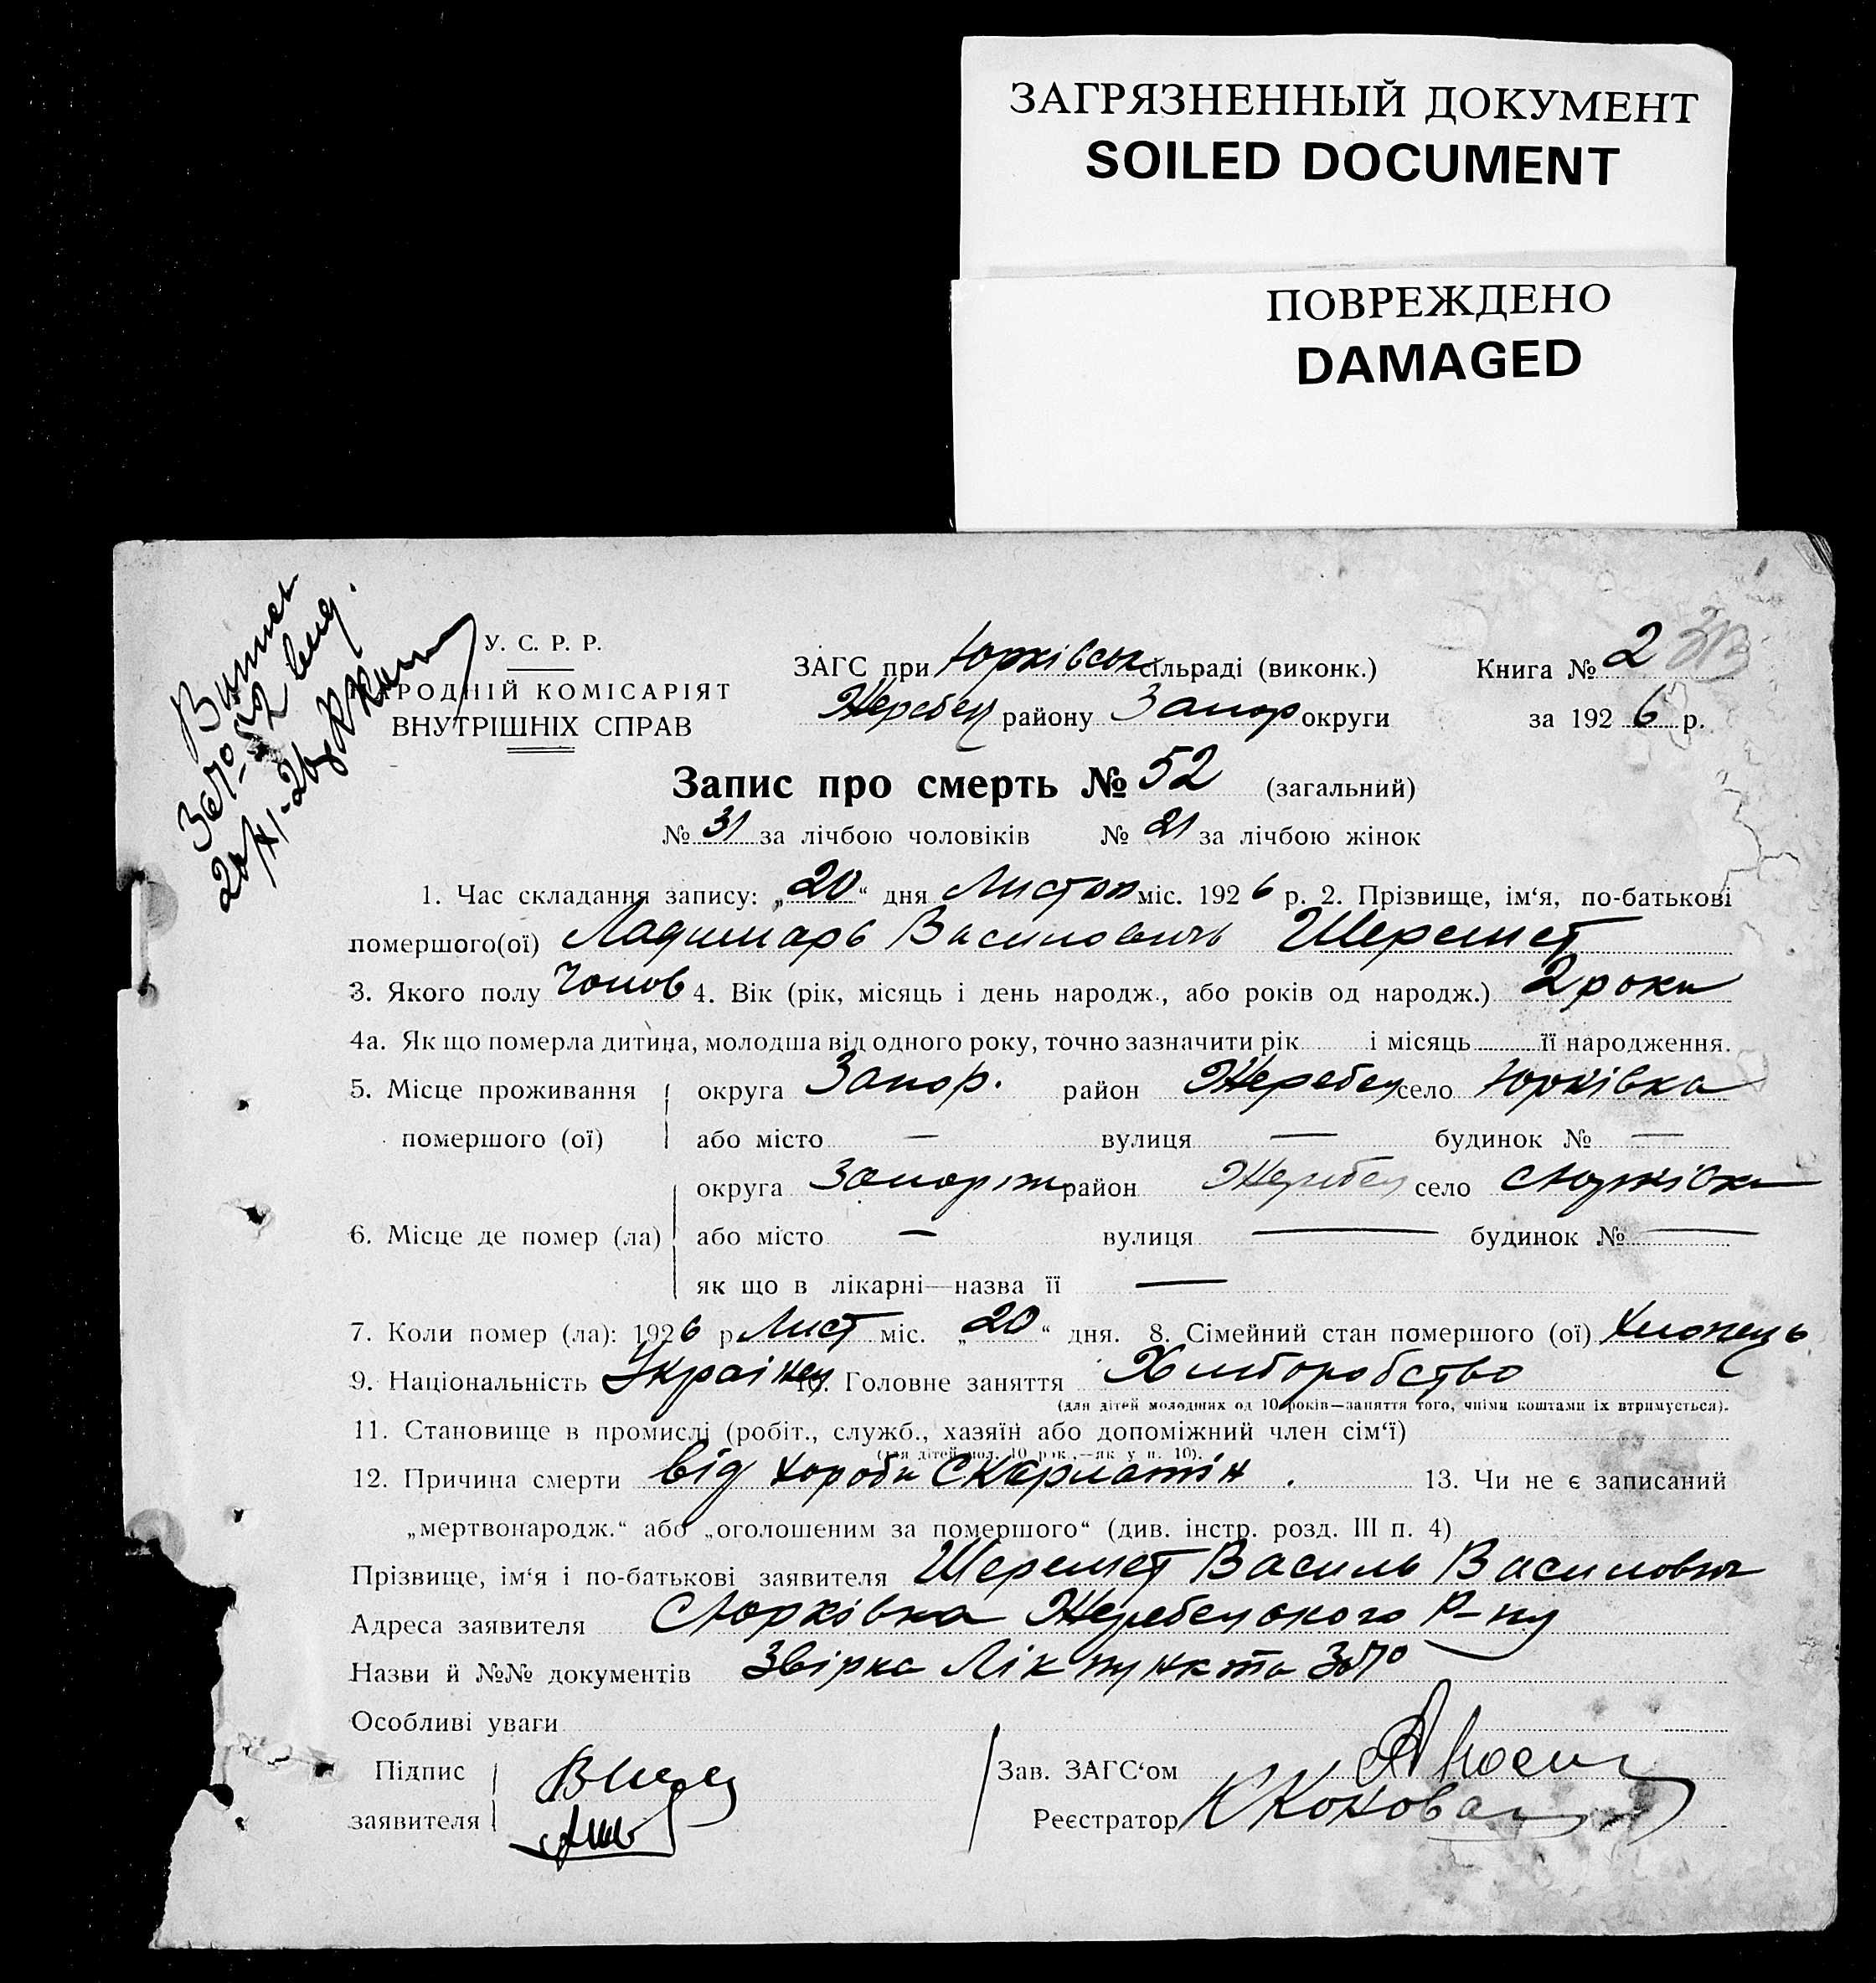 ЗАГРЯЗНЕННЫЙ ДОКУМЕНТ
SOILED DOCUMENT
ПОВРЕЖДЕНО
DAMAGED
У. С. Р. Р.
НАРОДНІЙ КОМІСАРІЯТ
ВНУТРІШНІХ СПРАВ
ЗАГС при Юрківськ сільраді (виконк.)
Жеребец району Запор округи
Книга № 2
за 1926 р.
Запис про смерть № 52 (загальний)
№ 31 за лічбою чоловіків № 21 за лічбою жінок
1. Час складання запису: „20“ дня Листоп міс. 1926 р. 2. Прізвище, ім‘я, по-батькові
помершого(ої) Ладимиарь Василовичь Шеремет
3. Якого полу Чолов 4. Вік (рік, місяць і день народж., або років од народж.) 2 роки
4а. Як що померла дитина, молодша від одного року, точно зазначити рік і місяць її народження.
5. Місце проживання округа Запор. район Жеребец село Юрківка
помершого (ої) або місто — вулиця — будинок № —
округа Запоріж район Жеребец село Юрківка
6. Місце де помер (ла) або місто — вулиця — будинок № —
як що в лікарні—назва її —
7. Коли помер (ла): 1926 р. Лист міс. „20“ дня. 8. Сімейний стан помершого (ої) Хлопець
9. Національність Українец 10. Головне заняття Хліборобство
(для дітей молодших од 10 років—заняття того, чиїми коштами їх втримується).
11. Становище в промислі (робіт., служб., хазяїн або допоміжний член сім‘ї)
(для дітей мол. 10 рок.,—як у п. 10).
12. Причина смерти від хороби Скарлатін. 13. Чи не є записаний
„мертвонародж.“ або „оголошеним за помершого“ (див. інстр. розд. III п. 4)
Прізвище, ім‘я і по-батькові заявителя Шеремет Василь Василович
Адреса заявителя Юрківка Жеребецького Р-ну
Назви й №№ документів Звірка Лікпункта
Особливі уваги
Підпис
заявителя
Зав. ЗАГС‘ом
Реєстратор